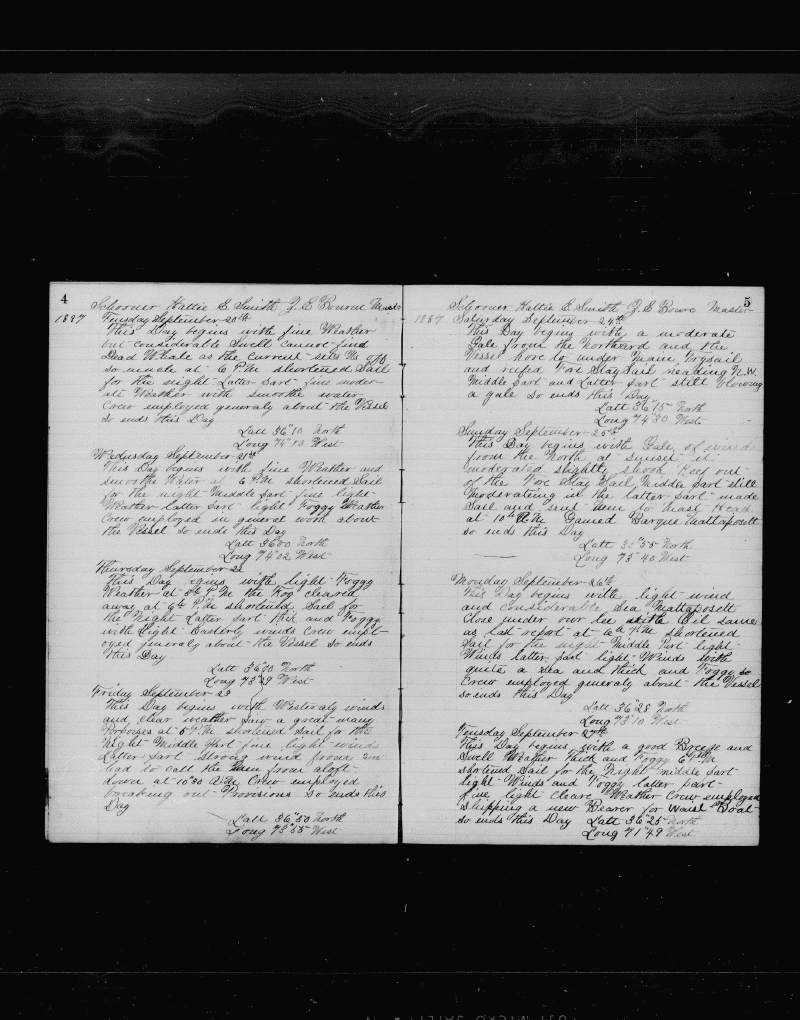 4
Schooner Hattie E. Smith J. E Bourne Master
1887 Tuesday September 20th
This Day begins with fine Weather
but considerable Swell cannot find
Dead Whale as the current sets us off
so much at 6 P.M. shortened Sail
for the night Latter part fine moder-
ate Weather with smoothe water
Crew employed generaly about the Vessel
so ends this Day
Latt 36°10 North
Long 74°13 West
Wedusday September 21st
This Day begins with fine Weather and
smoothe Water at 6 P.M. shortened Sail
for the night Middle part fine light
Weather latter part light Foggy Weather
Crew employed in general work about
the Vessel so ends this Day
Latt 36°00 North
Long 74°22 West
Thursday September 22
This Day egins with light Foggy
Weather at P.M. the Fog cleared
away at 6th P.M. shortened Sail for
the Night Latter part thick and Foggy
with light Easterly winds Crew empl-
oyed generaly about the Vessel so ends
this Day
Latt 36°00 North
Long 73°29 West
Friday September 23
This Day begins with Westeraly winds
and clear weather saw a great many
Porpoises at 5 P.M. shortened Sail for the
Night Middle part fine light winds
Latter part Strong wind from
had to call the Men from aloft
down at 10°30 A.M. Crew employed
breaking out Provisions so ends this
Day
Latt 36°50 North
Long 73°55 West
5
Schooner Hattie E Smith J. E Boure Master
1887 Saturday September 24th
This Day begins with a moderate
Gale from the Northard and the
Vessel hove to under Maine Trysail
and reifed Fore Stay Sail heading N.W.
Middle part and Latter part still blowing
a gale so ends this Day
Latt 36°15 North
Long 74°30 West
Sunday September 25th
This Day begins with Gale of wind
from the North at sunset it
moderated slightly shook Reef out
of the Fore Stay Sail Middle part still
moderating in the latter part made
Sail and sent men to Mast Head
at 10th A.M. Gamed Barque Mattaposett
so ends this Day
Latt 35 North
Long 73°40 West
Monday September 26th
This Day begins with light wind
and considerable Sea Mattaposett
Close under our lee Oil same
as last report at 6th P.M. shortened
Sail for the night Middle Part light
Winds latter part light Winds with
quite a sea and thick and Foggy
Crew employed generaly about the Vessel
so ends this Day
Latt 36°28 North
Long 73°10 West
Tuesday September 27th
This Day begins with a good Breeze and
Swell Weather thick and Foggy 6th P.M
shortened Sail for the Night middle part
light Winds and Foggy latter part
fine light clear Weather Crew employed
Shipping a new Bearer for Waist Boat
so ends this Day Latt 36°25 North
Long 71°49 West